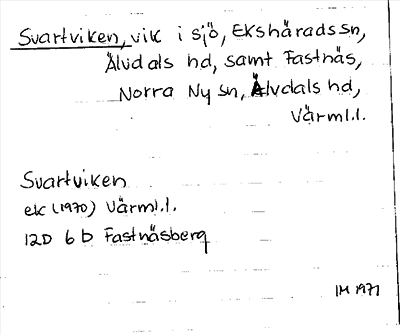 Svartviken, vik i sjö, Ekshärads sn,
Älvdals hd, samt Fastnäs,
Norra Ny sn, Älvdals hd,
Värml.l.
Svartviken
ek (1970) Värml.l.
12D 6b Fastnäsberg
IM 1971